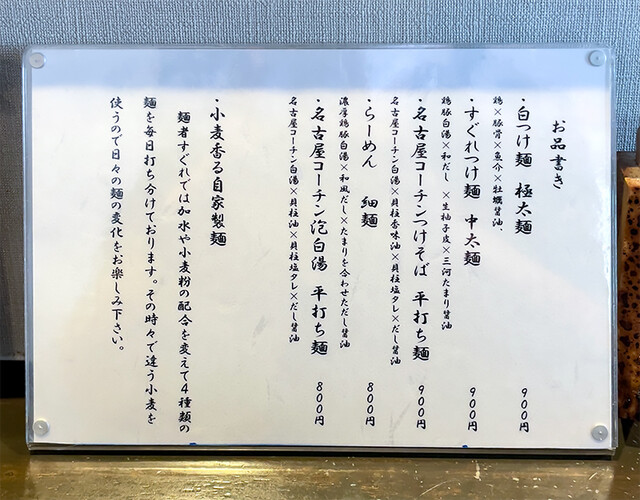 お品書き
・白つけ麺 極太麺 900円
鶏×豚骨×魚介×牡蠣醤油、
・すぐれつけ麺 中太麺 900円
鶏豚白湯×和だし ×生柚子皮×三河たまり醤油
・名古屋コーチンつけそば 平打ち麺 900円
名古屋コーチン白湯×貝柱香味油×貝柱塩タレ×だし醤油
・らーめん 細麺 800円
濃厚鶏豚白湯×和風だし×たまりを合わせただし醤油
・名古屋コーチン泡白湯 平打ち麺 800円
名古屋コーチン白湯×貝柱油×貝柱塩タレ×だし醤油
・小麦香る自家製麺
麺者すぐれでは加水や小麦粉の配合を変えて4種類の
麺を毎日打ち分けております。その時々で違う小麦を
使うので日々の麺の変化をお楽しみ下さい。